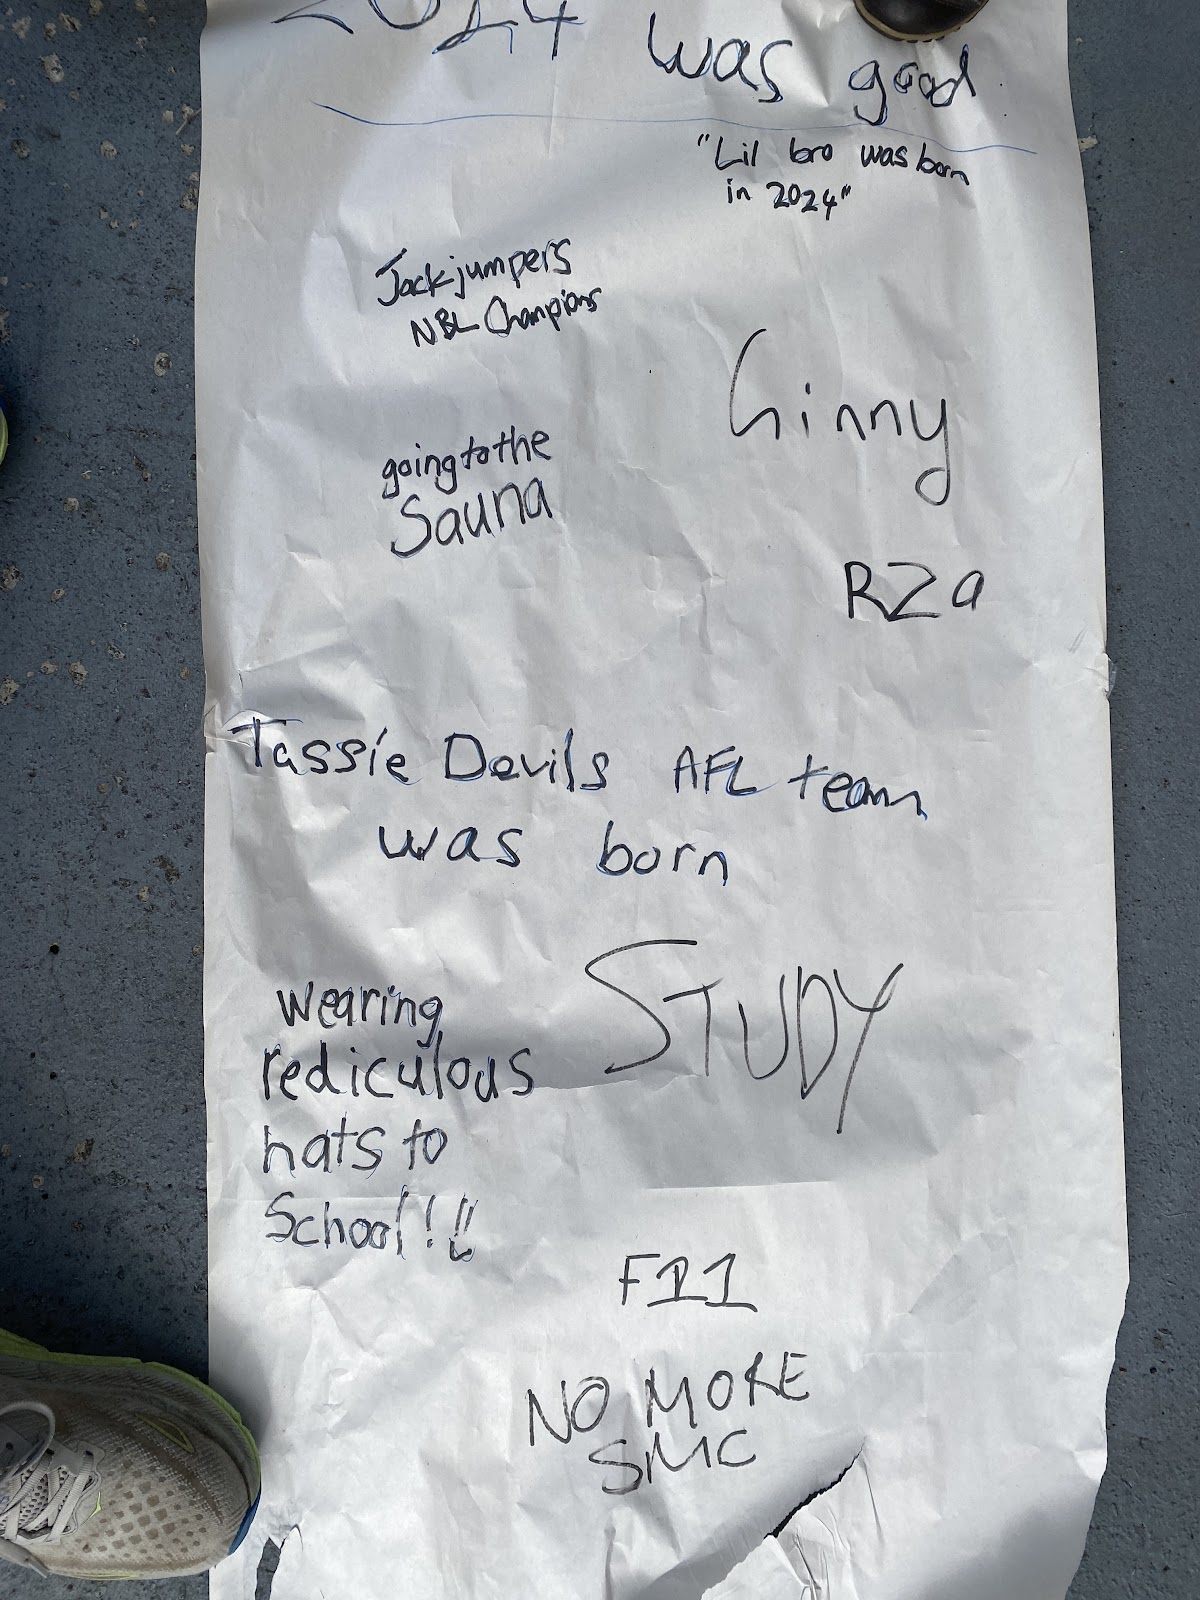 2024 was good
"Lil bro was born
in 2024"
Jackjumpers
NBL Champions
Ginny
going to the
Sauna
RZa
Tassie Devils AFL team
was born
STUDY
wearing
rediculous
hats to
School!!!
F11
NO MORE
SMC